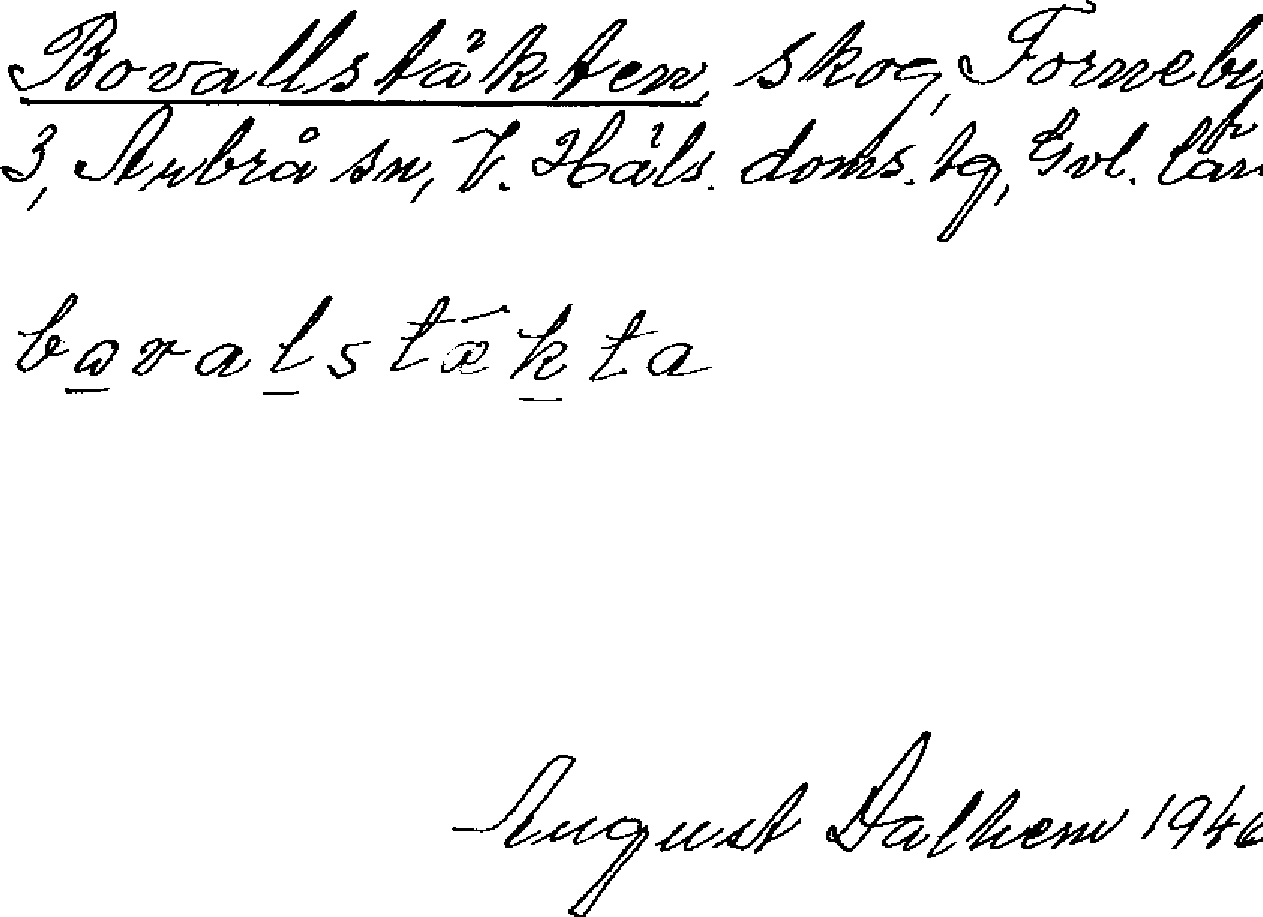 Bovallstäkten, skog, Forneby
3, Arbrå sn, V. Häls. doms. tg, Gvl. län
bovalstækta
August Dalhem 194